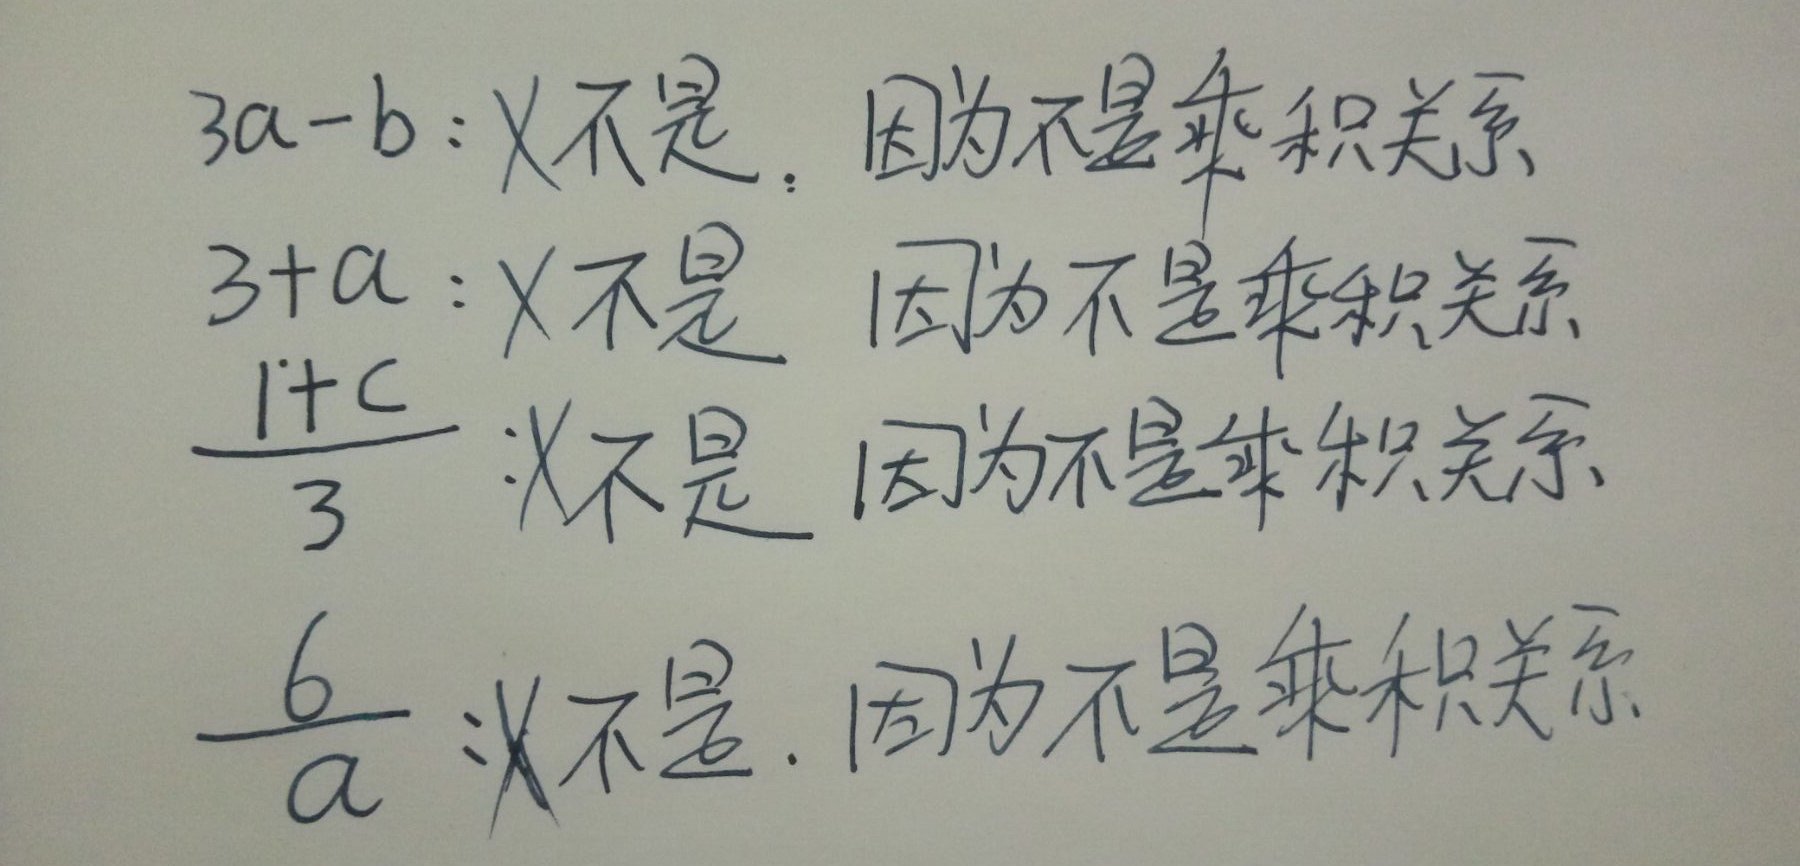 3a-b：X不是. 因为不是乘积关系
3+a：X不是 因为不是乘积关系
1+c
3
：X不是 因为不是乘积关系
6
a
：X不是. 因为不是乘积关系